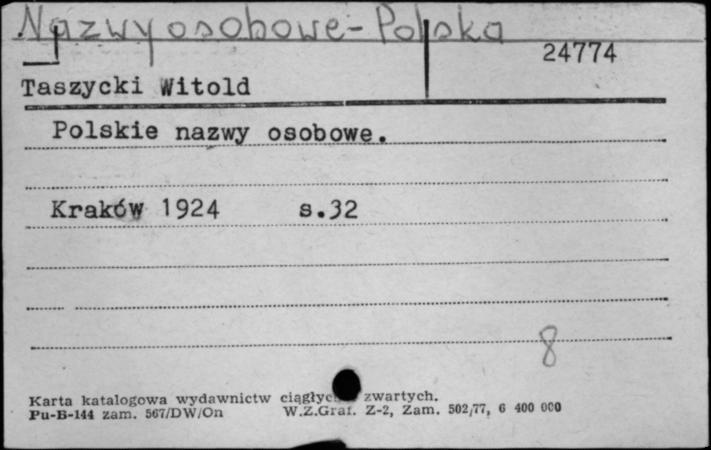 Nazwy osobowe - Polska
24774
Taszycki Witold
Polskie nazwy osobowe.
Kraków 1924 s.32
8
Karta katalogowa wydawnictw zwartych.
Pu-B-144 zam. 567/DW/On W.Z.Graf. Z-2, Zam. 502/77, 6 400 000